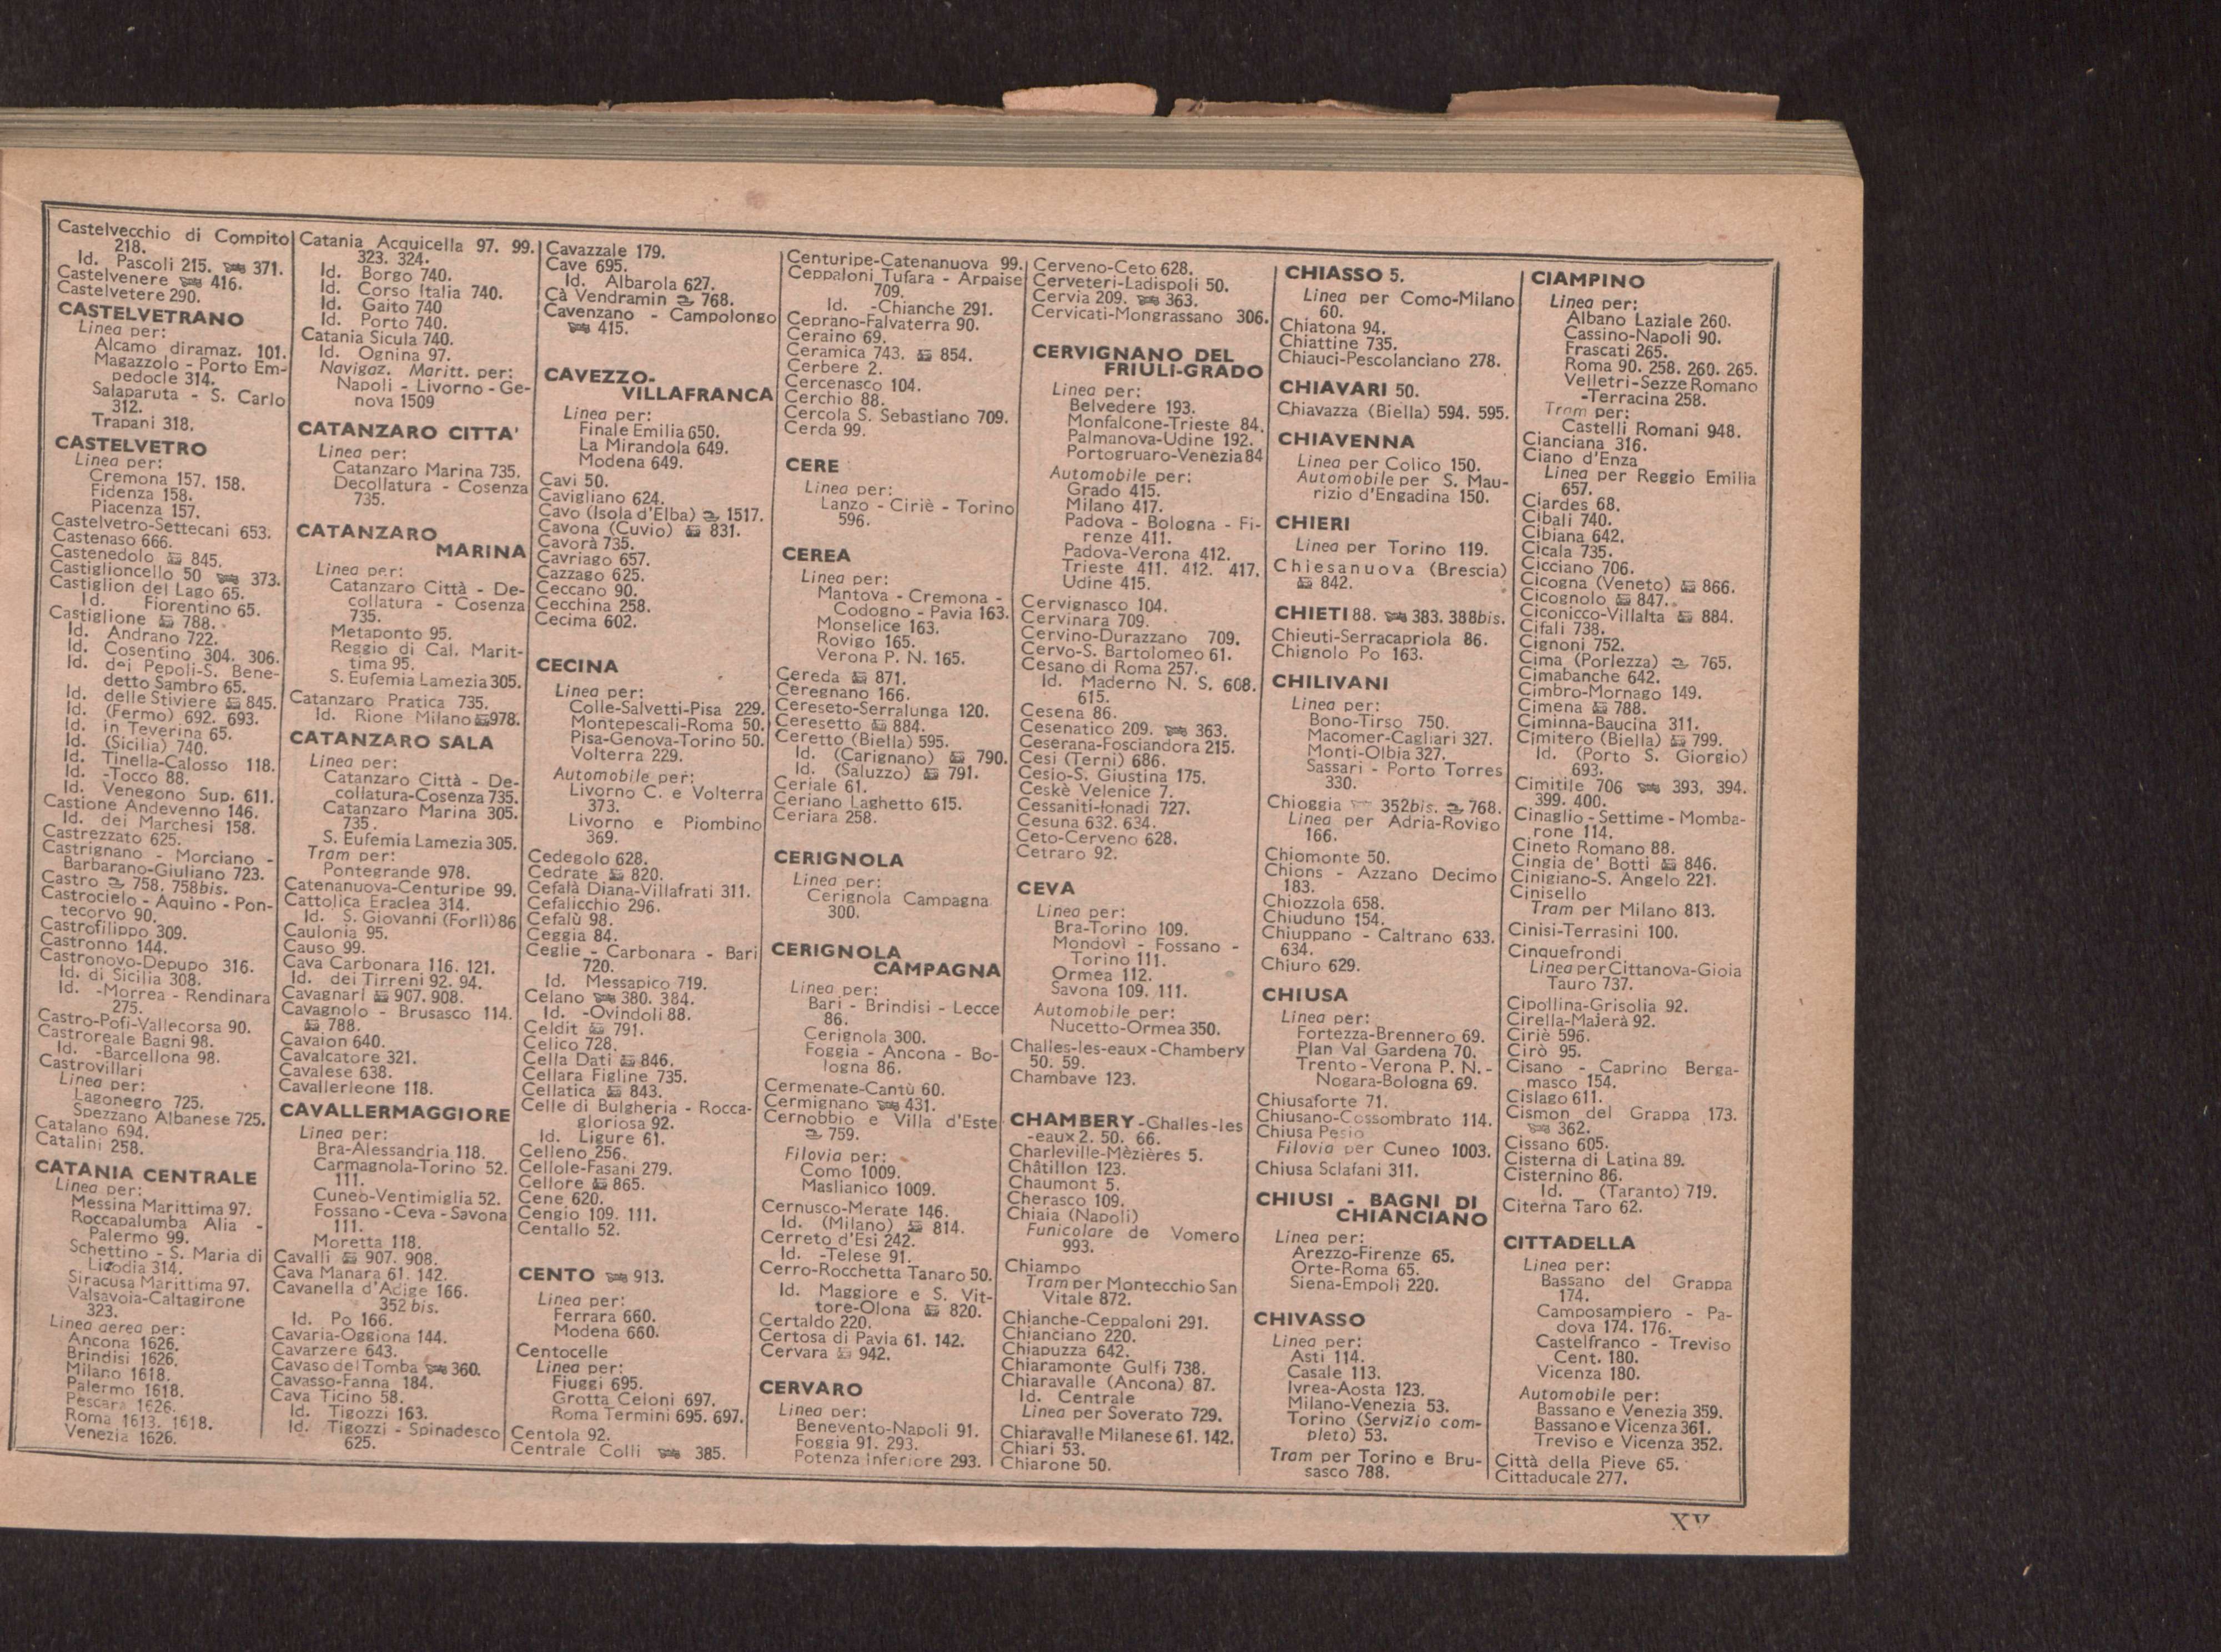 Castelvecchio di Compito
218.
Id. Pascoli 215. 371.
Castelvenere 416.
Castelvetere 290.
CASTELVETRANO
Linea per:
Alcamo diramaz. 101.
Magazzolo - Porto Em-
pedocle 314.
Salaparuta - S. Carlo
312.
Trapani 318.
CASTELVETRO
Linea per:
Cremona 157. 158.
Fidenza 158.
Piacenza 157.
Castelvetro-Settecani 653.
Castenaso 666.
Castenedolo 845.
Castiglioncello 50 373.
Castiglion del Lago 65.
Id. Fiorentino 65.
Castiglione 788.
Id. Andrano 722.
Id. Cosentino 304. 306.
Id. dei Pepoli-S. Bene-
detto Sambro 65.
Id. delle Stiviere 845.
Id. (Fermo) 692. 693.
Id. in Teverina 65.
Id. (Sicilia) 740.
Id. Tinella-Calosso 118.
Id. -Tocco 88.
Id. Venegono Sup. 611.
Castione Andevenno 146.
Id. dei Marchesi 158.
Castrezzato 625.
Castrignano - Morciano -
Barbarano-Giuliano 723.
Castro 758. 758bis.
Castrocielo - Aquino - Pon-
tecorvo 90.
Castrofilippo 309.
Castronno 144.
Castronovo-Depupo 316.
Id. di Sicilia 308.
Id. -Morrea - Rendinara
275.
Castro-Pofi-Vallecorsa 90.
Castroreale Bagni 98.
Id. -Barcellona 98.
Castrovillari
Linea per:
Lagonegro 725.
Spezzano Albanese 725.
Catalano 694.
Catalini 258.
CATANIA CENTRALE
Linea per:
Messina Marittima 97.
Roccapalumba Alia -
Palermo 99.
Schettino - S. Maria di
Licodia 314.
Siracusa Marittima 97.
Valsavoia-Caltagirone
323.
Linea aerea per:
Ancona 1626.
Brindisi 1626.
Milano 1618.
Palermo 1618.
Pescara 1626.
Roma 1613. 1618.
Venezia 1626.
Catania Acquicella 97. 99.
323. 324.
Id. Borgo 740.
Id. Corso Italia 740.
Id. Gaito 740
Id. Porto 740.
Catania Sicula 740.
Id. Ognina 97.
Navigaz. Maritt. per:
Napoli - Livorno - Ge-
nova 1509
CATANZARO CITTA'
Linea per:
Catanzaro Marina 735.
Decollatura - Cosenza
735.
CATANZARO
MARINA
Linea per:
Catanzaro Città - De-
collatura - Cosenza
735.
Metaponto 95.
Reggio di Cal. Marit-
tima 95.
S. Eufemia Lamezia 305.
Catanzaro Pratica 735.
Id. Rione Milano 978.
CATANZARO SALA
Linea per:
Catanzaro Città - De-
collatura-Cosenza 735.
Catanzaro Marina 305.
735.
S. Eufemia Lamezia 305.
Tram per:
Pontegrande 978.
Catenanuova-Centuripe 99.
Cattolica Eraclea 314.
Id. S. Giovanni (Forlì) 86
Caulonia 95.
Causo 99.
Cava Carbonara 116. 121.
Id. dei Tirreni 92. 94.
Cavagnari 907. 908.
Cavagnolo - Brusasco 114.
788.
Cavaion 640.
Cavalcatore 321.
Cavalese 638.
Cavallerleone 118.
CAVALLERMAGGIORE
Linea per:
Bra-Alessandria 118.
Carmagnola-Torino 52.
111.
Cuneo-Ventimiglia 52.
Fossano - Ceva - Savona
111.
Moretta 118.
Cavalli 907. 908.
Cava Manara 61. 142.
Cavanella d'Adige 166.
352 bis.
Id. Po 166.
Cavaria-Oggiona 144.
Cavarzere 643.
Cavaso del Tomba 360.
Cavasso-Fanna 184.
Cava Ticino 58.
Id. Tigozzi 163.
Id. Tigozzi - Spinadesco
625.
Cavazzale 179.
Cave 695.
Id. Albarola 627.
Cà Vendramin 768.
Cavenzano - Campolongo
415.
CAVEZZO-
VILLAFRANCA
Linea per:
Finale Emilia 650.
La Mirandola 649.
Modena 649.
Cavi 50.
Cavigliano 624.
Cavo (Isola d'Elba) 1517.
Cavona (Cuvio) 831.
Cavorà 735.
Cavriago 657.
Cazzago 625.
Ceccano 90.
Cecchina 258.
Cecima 602.
CECINA
Linea per:
Colle-Salvetti-Pisa 229.
Montepescali-Roma 50.
Pisa-Genova-Torino 50.
Volterra 229.
Automobile per:
Livorno C. e Volterra
373.
Livorno e Piombino
369.
Cedegolo 628.
Cedrate 820.
Cefalà Diana-Villafrati 311.
Cefalicchio 296.
Cefalù 98.
Ceggia 84.
Ceglie - Carbonara - Bari
720.
Id. Messapico 719.
Celano 380. 384.
Id. -Ovindoli 88.
Celdit 791.
Celico 728.
Cella Dati 846.
Cellara Figline 735.
Cellatica 843.
Celle di Bulgheria - Rocca-
gloriosa 92.
Id. Ligure 61.
Celleno 256.
Cellole-Fasani 279.
Cellore 865.
Cene 620.
Cengio 109. 111.
Centallo 52.
CENTO 913.
Linea per:
Ferrara 660.
Modena 660.
Centocelle
Linea per:
Fiuggi 695.
Grotta Celoni 697.
Roma Termini 695. 697.
Centola 92.
Centrale Colli 385.
Centuripe-Catenanuova 99.
Ceppaloni Tufara - Arpaise
709.
Id. -Chianche 291.
Ceprano-Falvaterra 90.
Ceraino 69.
Ceramica 743. 854.
Cerbere 2.
Cercenasco 104.
Cerchio 88.
Cercola S. Sebastiano 709.
Cerda 99.
CERE
Linea per:
Lanzo - Ciriè - Torino
596.
CEREA
Linea per:
Mantova - Cremona -
Codogno - Pavia 163.
Monselice 163.
Rovigo 165.
Verona P. N. 165.
Cereda 871.
Ceregnano 166.
Cereseto-Serralunga 120.
Ceresetto 884.
Ceretto (Biella) 595.
Id. (Carignano) 790.
Id. (Saluzzo) 791.
Ceriale 61.
Ceriano Laghetto 615.
Ceriara 258.
CERIGNOLA
Linea per:
Cerignola Campagna
300.
CERIGNOLA
CAMPAGNA
Linea per:
Bari - Brindisi - Lecce
86.
Cerignola 300.
Foggia - Ancona - Bo-
logna 86.
Cermenate-Cantù 60.
Cermignano 431.
Cernobbio e Villa d'Este
759.
Filovia per:
Como 1009.
Maslianico 1009.
Cernusco-Merate 146.
Id. (Milano) 814.
Cerreto d'Esi 242.
Id. -Telese 91.
Cerro-Rocchetta Tanaro 50.
Id. Maggiore e S. Vit-
tore-Olona 820.
Certaldo 220.
Certosa di Pavia 61. 142.
Cervara 942.
CERVARO
Linea per:
Benevento-Napoli 91.
Foggia 91. 293.
Potenza Inferiore 293.
Cerveno-Ceto 628.
Cerveteri-Ladispoli 50.
Cervia 209. 363.
Cervicati-Mongrassano 306.
CERVIGNANO DEL
FRIULI-GRADO
Linea per:
Belvedere 193.
Monfalcone-Trieste 84.
Palmanova-Udine 192.
Portogruaro-Venezia 84
Automobile per:
Grado 415.
Milano 417.
Padova - Bologna - Fi-
renze 411.
Padova-Verona 412.
Trieste 411. 412. 417.
Udine 415.
Cervignasco 104.
Cervinara 709.
Cervino-Durazzano 709.
Cervo-S. Bartolomeo 61.
Cesano di Roma 257.
Id. Maderno N. S. 608.
615.
Cesena 86.
Cesenatico 209. 363.
Ceserana-Fosciandora 215.
Cesi (Terni) 686.
Cesio-S. Giustina 175.
Ceskè Velenice 7.
Cessaniti-Ionadi 727.
Cesuna 632. 634.
Ceto-Cerveno 628.
Cetraro 92.
CEVA
Linea per:
Bra-Torino 109.
Mondovì - Fossano -
Torino 111.
Ormea 112.
Savona 109. 111.
Automobile per:
Nucetto-Ormea 350.
Challes-les-eaux-Chambery
50. 59.
Chambave 123.
CHAMBERY-Challes-les
-eaux 2. 50. 66.
Charleville-Mèzières 5.
Châtillon 123.
Chaumont 5.
Cherasco 109.
Chiaia (Napoli)
Funicolare de Vomero
993.
Chiampo
Tram per Montecchio San
Vitale 872.
Chianche-Ceppaloni 291.
Chianciano 220.
Chiapuzza 642.
Chiaramonte Gulfi 738.
Chiaravalle (Ancona) 87.
Id. Centrale
Linea per Soverato 729.
Chiaravalle Milanese 61. 142.
Chiari 53.
Chiarone 50.
CHIASSO 5.
Linea per Como-Milano
60.
Chiatona 94.
Chiattine 735.
Chiauci-Pescolanciano 278.
CHIAVARI 50.
Chiavazza (Biella) 594. 595.
CHIAVENNA
Linea per Colico 150.
Automobile per S. Mau-
rizio d'Engadina 150.
CHIERI
Linea per Torino 119.
Chiesanuova (Brescia)
842.
CHIETI 88. 383. 388bis.
Chieuti-Serracapriola 86.
Chignolo Po 163.
CHILIVANI
Linea per:
Bono-Tirso 750.
Macomer-Cagliari 327.
Monti-Olbia 327.
Sassari - Porto Torres
330.
Chioggia 352bis. 768.
Linea per Adria-Rovigo
166.
Chiomonte 50.
Chions - Azzano Decimo
183.
Chiozzola 658.
Chiuduno 154.
Chiuppano - Caltrano 633.
634.
Chiuro 629.
CHIUSA
Linea per:
Fortezza-Brennero 69.
Plan Val Gardena 70.
Trento - Verona P. N. -
Nogara-Bologna 69.
Chiusaforte 71.
Chiusano-Cossombrato 114.
Chiusa Pesio
Filovia per Cuneo 1003.
Chiusa Sclafani 311.
CHIUSI - BAGNI DI
CHIANCIANO
Linea per:
Arezzo-Firenze 65.
Orte-Roma 65.
Siena-Empoli 220.
CHIVASSO
Linea per:
Asti 114.
Casale 113.
Ivrea-Aosta 123.
Milano-Venezia 53.
Torino (Servizio com-
pleto) 53.
Tram per Torino e Bru-
sasco 788.
CIAMPINO
Linea per:
Albano Laziale 260.
Cassino-Napoli 90.
Frascati 265.
Roma 90. 258. 260. 265.
Velletri-Sezze Romano
-Terracina 258.
Tram per:
Castelli Romani 948.
Cianciana 316.
Ciano d'Enza
Linea per Reggio Emilia
657.
Ciardes 68.
Cibali 740.
Cibiana 642.
Cicala 735.
Cicciano 706.
Cicogna (Veneto) 866.
Cicognolo 847.
Ciconicco-Villalta 884.
Cifali 738.
Cignoni 752.
Cima (Porlezza) 765.
Cimabanche 642.
Cimbro-Mornago 149.
Cimena 788.
Ciminna-Baucina 311.
Cimitero (Biella) 799.
Id. (Porto S. Giorgio)
693.
Cimitile 706 393. 394.
399. 400.
Cinaglio - Settime - Momba-
rone 114.
Cineto Romano 88.
Cingia de' Botti 846.
Cinigiano-S. Angelo 221.
Cinisello
Tram per Milano 813.
Cinisi-Terrasini 100.
Cinquefrondi
Linea per Cittanova-Gioia
Tauro 737.
Cipollina-Grisolia 92.
Cirella-Majerà 92.
Ciriè 596.
Cirò 95.
Cisano - Caprino Berga-
masco 154.
Cislago 611.
Cismon del Grappa 173.
362.
Cissano 605.
Cisterna di Latina 89.
Cisternino 86.
Id. (Taranto) 719.
Citerna Taro 62.
CITTADELLA
Linea per:
Bassano del Grappa
174.
Camposampiero - Pa-
dova 174. 176.
Castelfranco - Treviso
Cent. 180.
Vicenza 180.
Automobile per:
Bassano e Venezia 359.
Bassano e Vicenza 361.
Treviso e Vicenza 352.
Città della Pieve 65.
Cittaducale 277.
XV